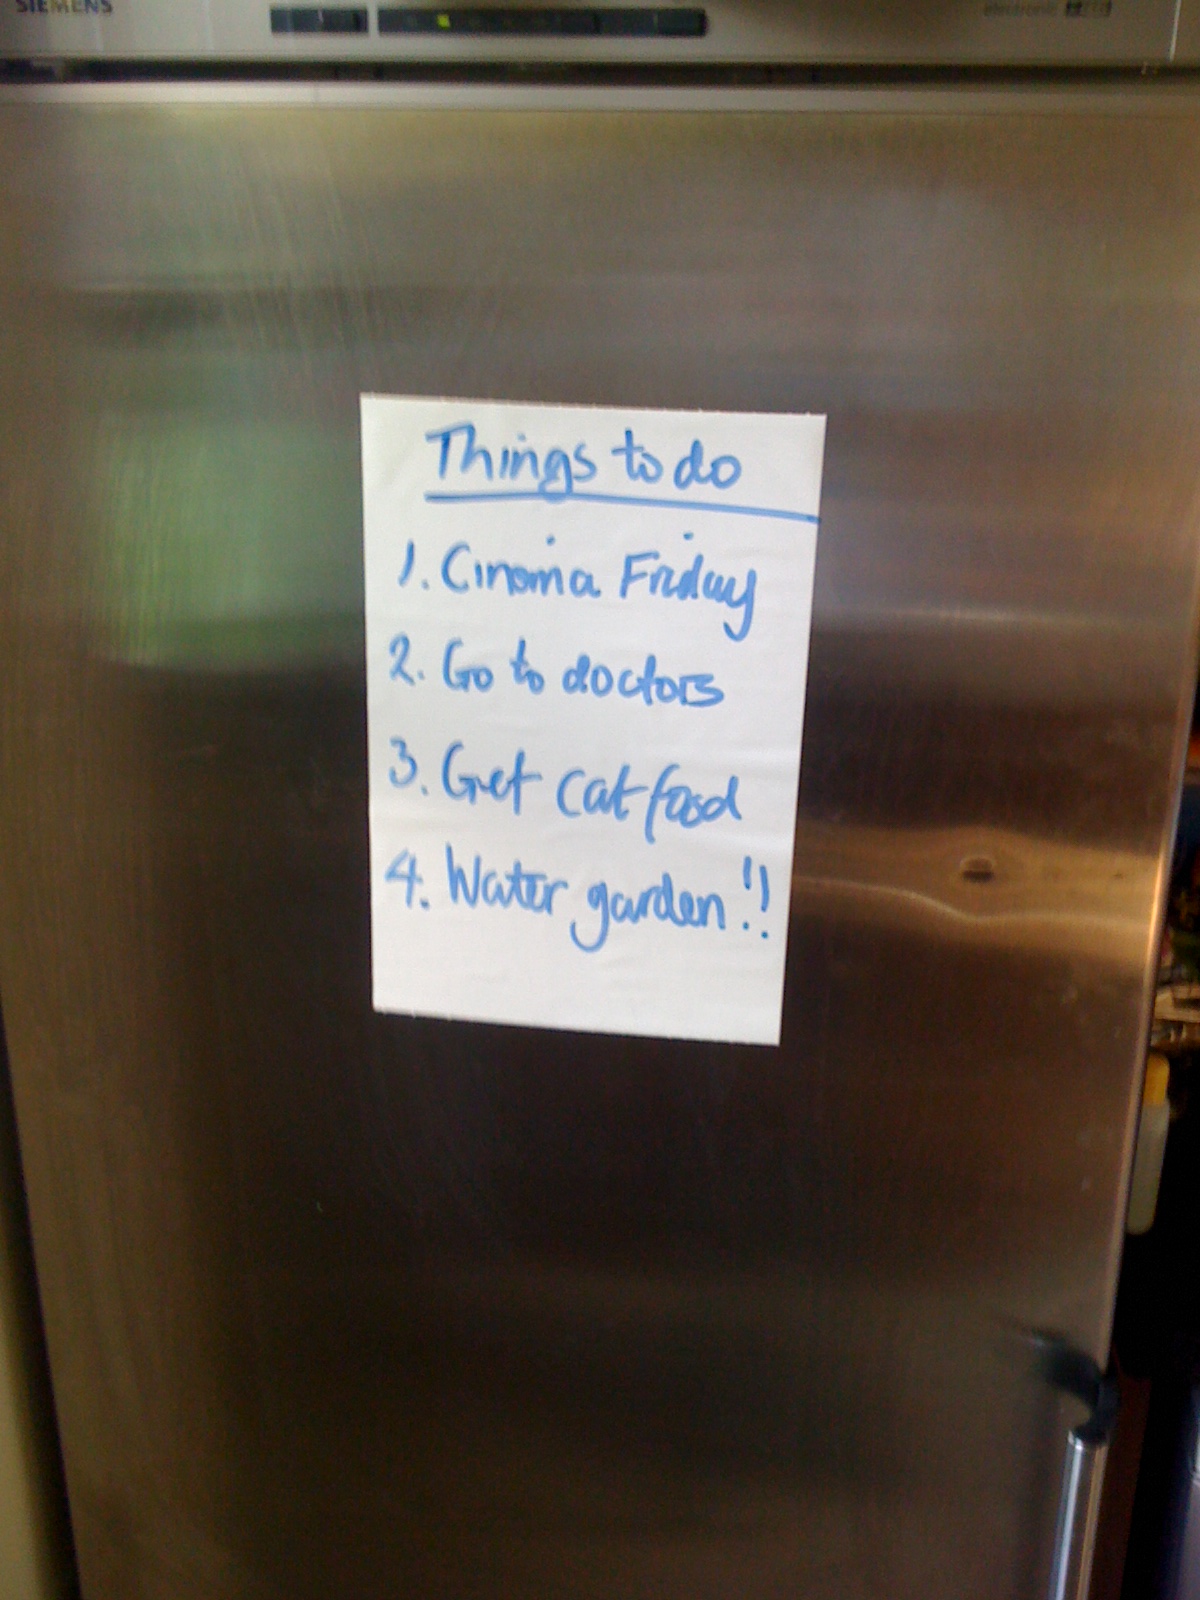 SIEMENS
electronic
Things to do
1. Cinema Friday
2. Go to doctors
3. Get cat food
4. Water garden!!